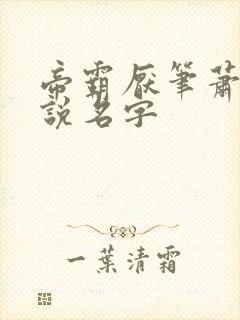 帝霸厌笔萧
説名字
一葉清霜